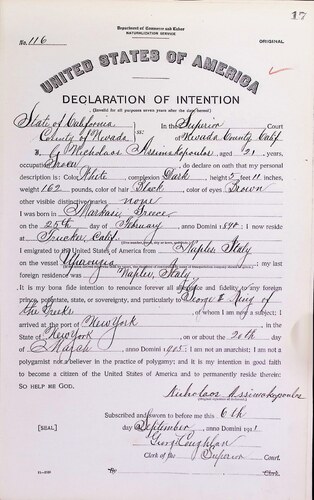 17
Department of Commerce and Labor
NATURALIZATION SERVICE
No. 116
ORIGINAL
UNITED STATES OF AMERICA
DECLARATION OF INTENTION
(Invalid for all purposes seven years after the date hereof)
State of California
County of Nevada ss: In the Superior Court
of Nevada County Calif
I, Nicholaos Assimakopoulos, aged 21 years,
occupation , do declare on oath that my personal
description is: Color White, complexion Dark, height 5 feet 11 inches,
weight 162 pounds, color of hair Black, color of eyes Brown
other visible distinctive marks none
I was born in Greece
on the 25th day of February, anno Domini 1890; I now reside
at Truckee, Calif.
I emigrated to the United States of America from Naples, Italy
on the vessel ; my last
foreign residence was Naples, Italy
It is my bona fide intention to renounce forever all allegiance and fidelity to any foreign
prince, potentate, state, or sovereignty, and particularly to George I King of
the Greeks, of whom I am now a subject; I
arrived at the port of New York, in the
State of New York, on or about the 20th day
of March, anno Domini 1905; I am not an anarchist; I am not a
polygamist nor a believer in the practice of polygamy; and it is my intention in good faith
to become a citizen of the United States of America and to permanently reside therein:
SO HELP ME GOD.
Nicholaos Assimakopoulos
Subscribed and sworn to before me this 6th
[SEAL] day of September, anno Domini 1911
Geo. Coughlan
Clerk of the Superior Court.
By , Clerk.